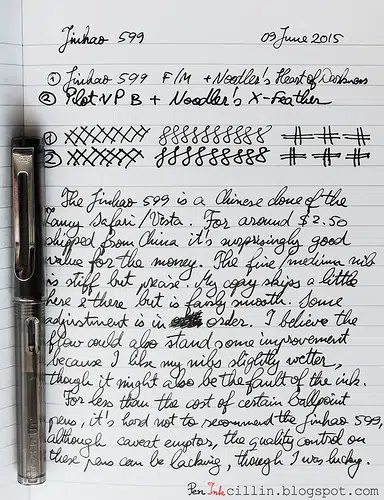 Jinhao 599 09 June 2015
① Jinhao 599 F/M + Noodler's Heart of Darkness
② Pilot VP B + Noodler's X-Feather
①
②
The Jinhao 599 is a Chinese clone of the
Lamy Safari/Vista. For around $2.50
shipped from China it's surprisingly good
value for the money. The fine/medium nib
is stiff but precise. My copy skips a little
here & there but is fairly smooth. Some
adjustment is in order. I believe the
flow could also stand some improvement
because I like my nibs slightly wetter,
though it might also be the fault of the ink.
For less than the cost of certain ballpoint
pens, it's hard not to recommend the Jinhao 599,
although caveat emptor, the quality control on
these pens can be lacking, though I was lucky.
Pen Inkcillin.blogspot.com